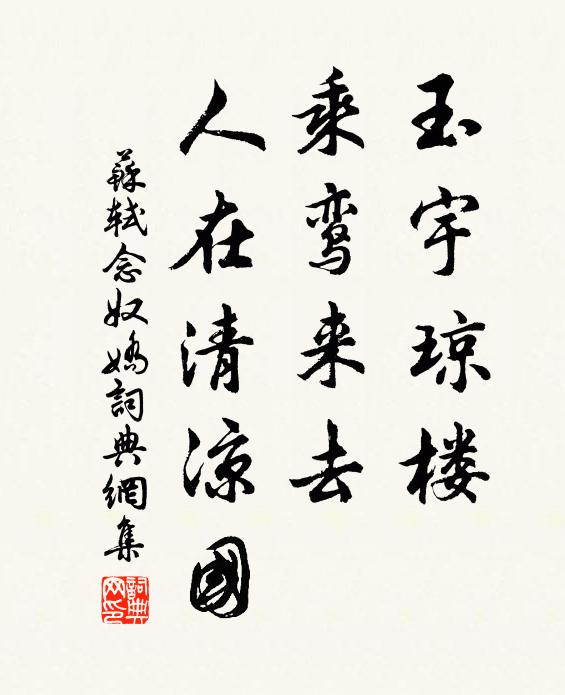 玉宇琼楼
乘鸾来去
人在清凉國
蘇軾念奴嬌詞典網集
詞典网印